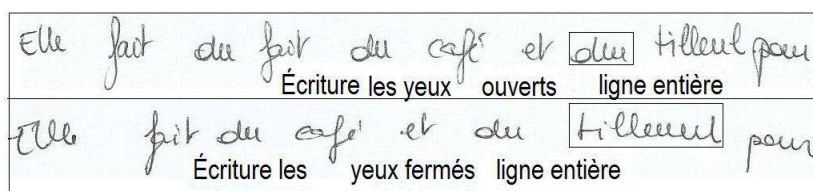 Elle fait du fait du café et du tilleul pour
Écriture les yeux ouverts ligne entière
Elle fait du café et du tilleul pour
Écriture les yeux fermés ligne entière